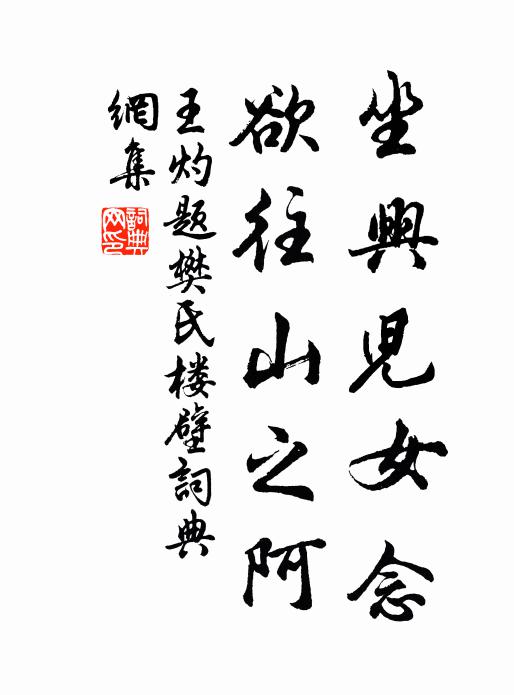 坐興兒女念
欲往山之阿
王灼題樊氏楼壁詞典
網集
詞典网印